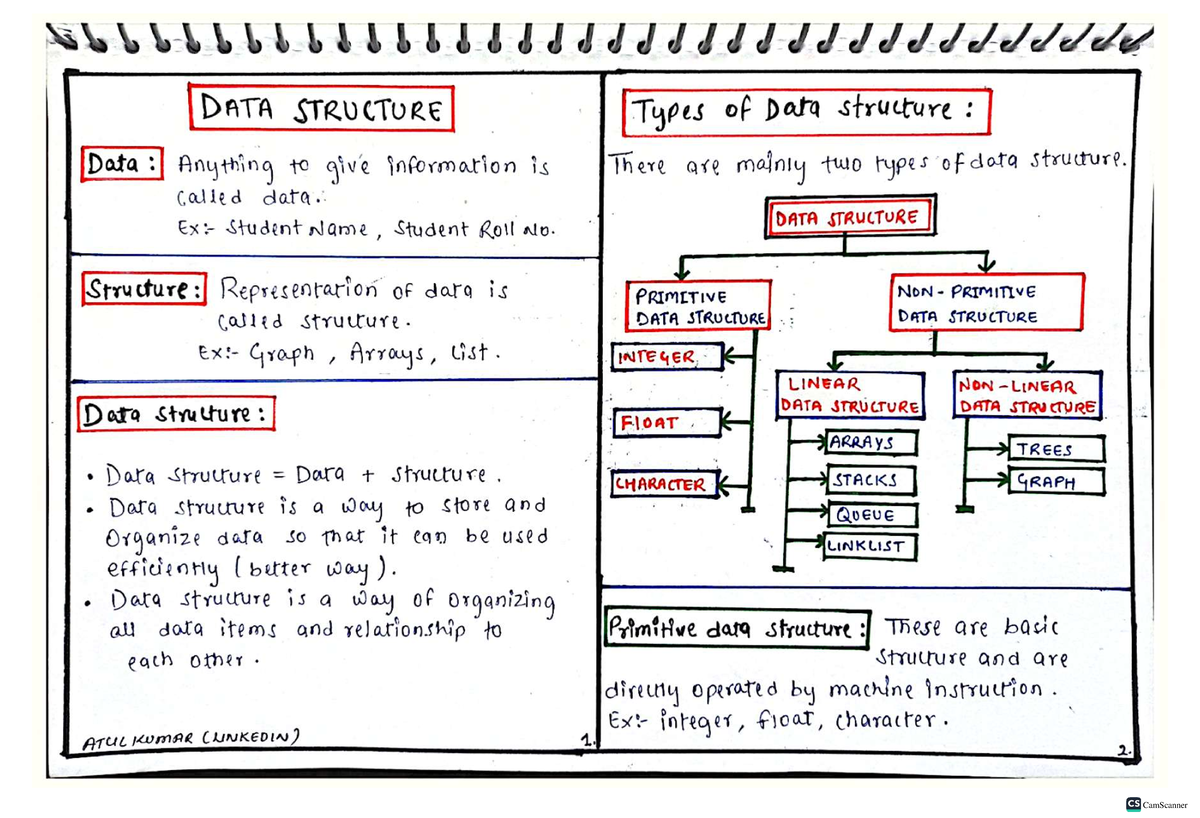 DATA STRUCTURE
Data : Anything to give information is
called data.
Ex:- Student Name, Student Roll No.
Structure : Representation of data is
called structure.
Ex:- Graph, Arrays, List.
Data structure :
• Data structure = Data + structure.
• Data structure is a way to store and
Organize data so that it can be used
efficiently (better way).
• Data structure is a way of organizing
all data items and relationship to
each other.
ATUL KUMAR (LINKEDIN)
1.
Types of Data structure :
There are mainly two types of data structure.
DATA STRUCTURE
PRIMITIVE
DATA STRUCTURE
NON-PRIMITIVE
DATA STRUCTURE
INTEGER
FLOAT
CHARACTER
LINEAR
DATA STRUCTURE
ARRAYS
STACKS
QUEUE
LINKLIST
NON-LINEAR
DATA STRUCTURE
TREES
GRAPH
Primitive data structure : These are basic
structure and are
directly operated by machine instruction.
Ex:- integer, float, character.
2.
CS CamScanner